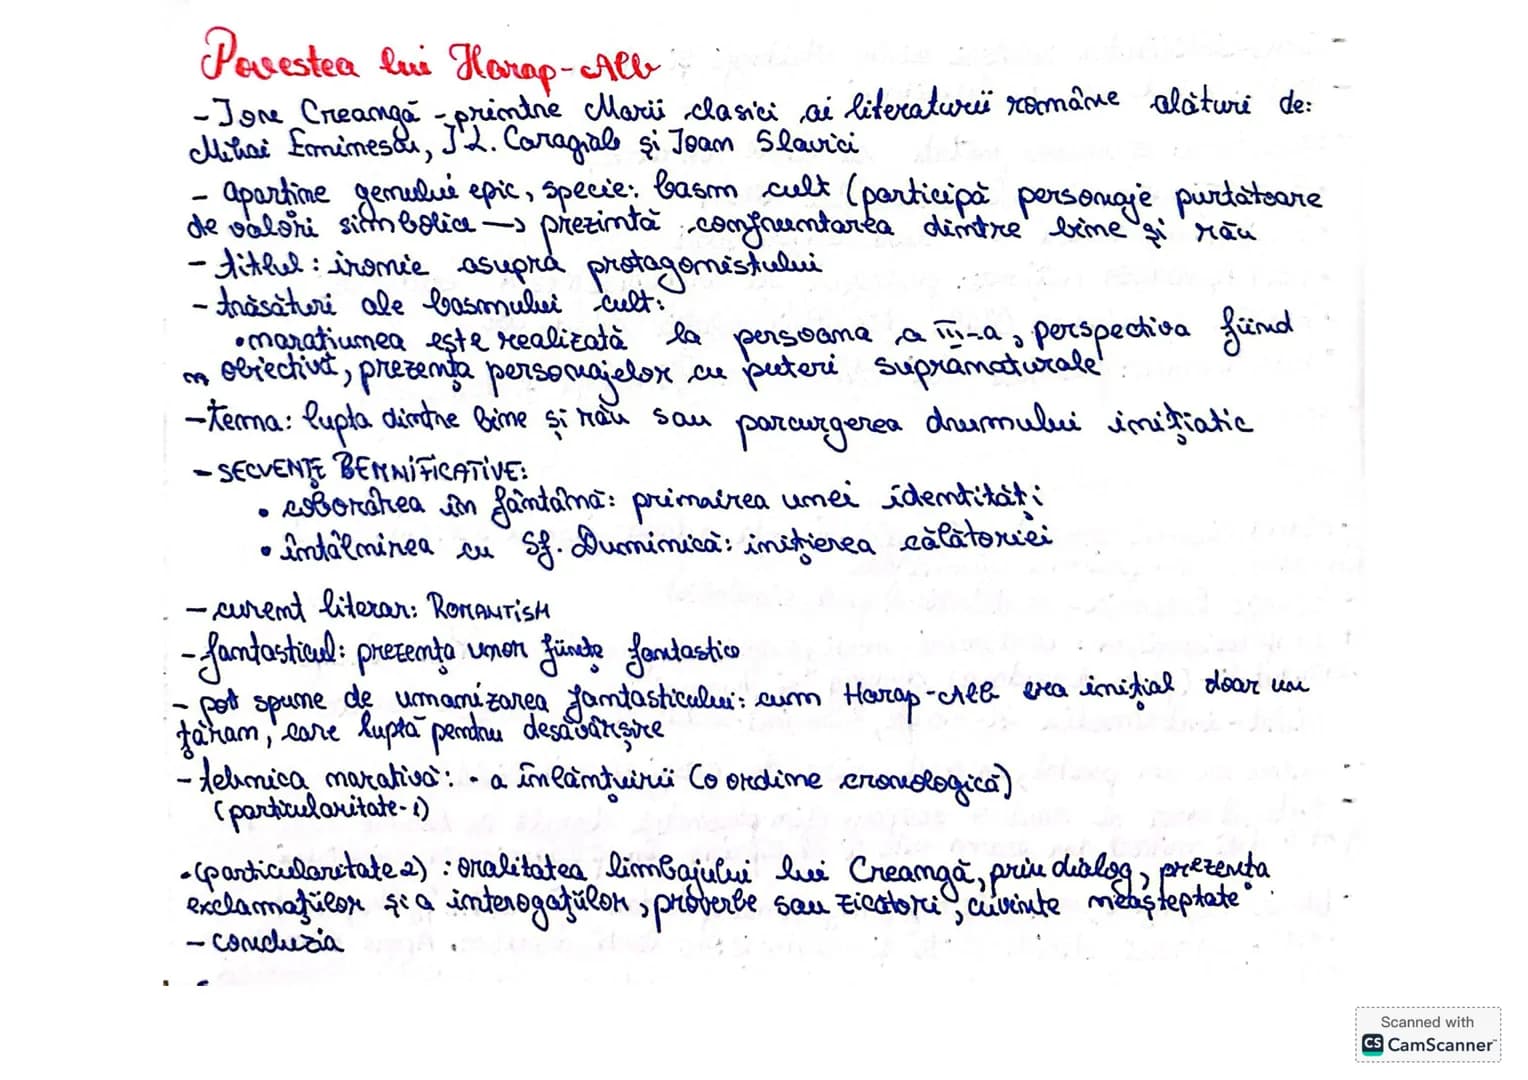 Povestea lui Harap-Alb
- Ione Creangă - printre Marii clasici ai literaturii române alături de:
Mihai Eminescu, I.L. Caragiale și Ioan Slavici
- aparține genului epic, specie: basm cult (participă personaje purtătoare
de valori simbolice → prezintă confruntarea dintre bine și rău
- titlul: ironie asupra protagonistului
- trăsături ale basmului cult:
• narațiunea este realizată la persoana a III-a, perspectiva fiind
obiectivă, prezența personajelor cu puteri supranaturale
- tema: lupta dintre bine și rău sau parcurgerea drumului inițiatic
- SECVENȚE SEMNIFICATIVE:
• coborârea în fântână: primirea unei identități
• întâlnirea cu Sf. Duminică: inițierea călătoriei
- curent literar: ROMANTISM
- fantasticul: prezența unor ființe fantastice
- pot spune de umanizarea fantasticului: cum Harap-Alb era inițial doar un
țăran, care luptă pentru desăvârșire
- tehnica narativă: - a înlănțuirii (o ordine cronologică)
(particularitate-1)
- (particularitate 2) : oralitatea limbajului lui Creangă, prin dialog, prezența
exclamațiilor și a interogațiilor, proverbe sau zicători, cuvinte neașteptate
- concluzia
Scanned with
CS CamScanner